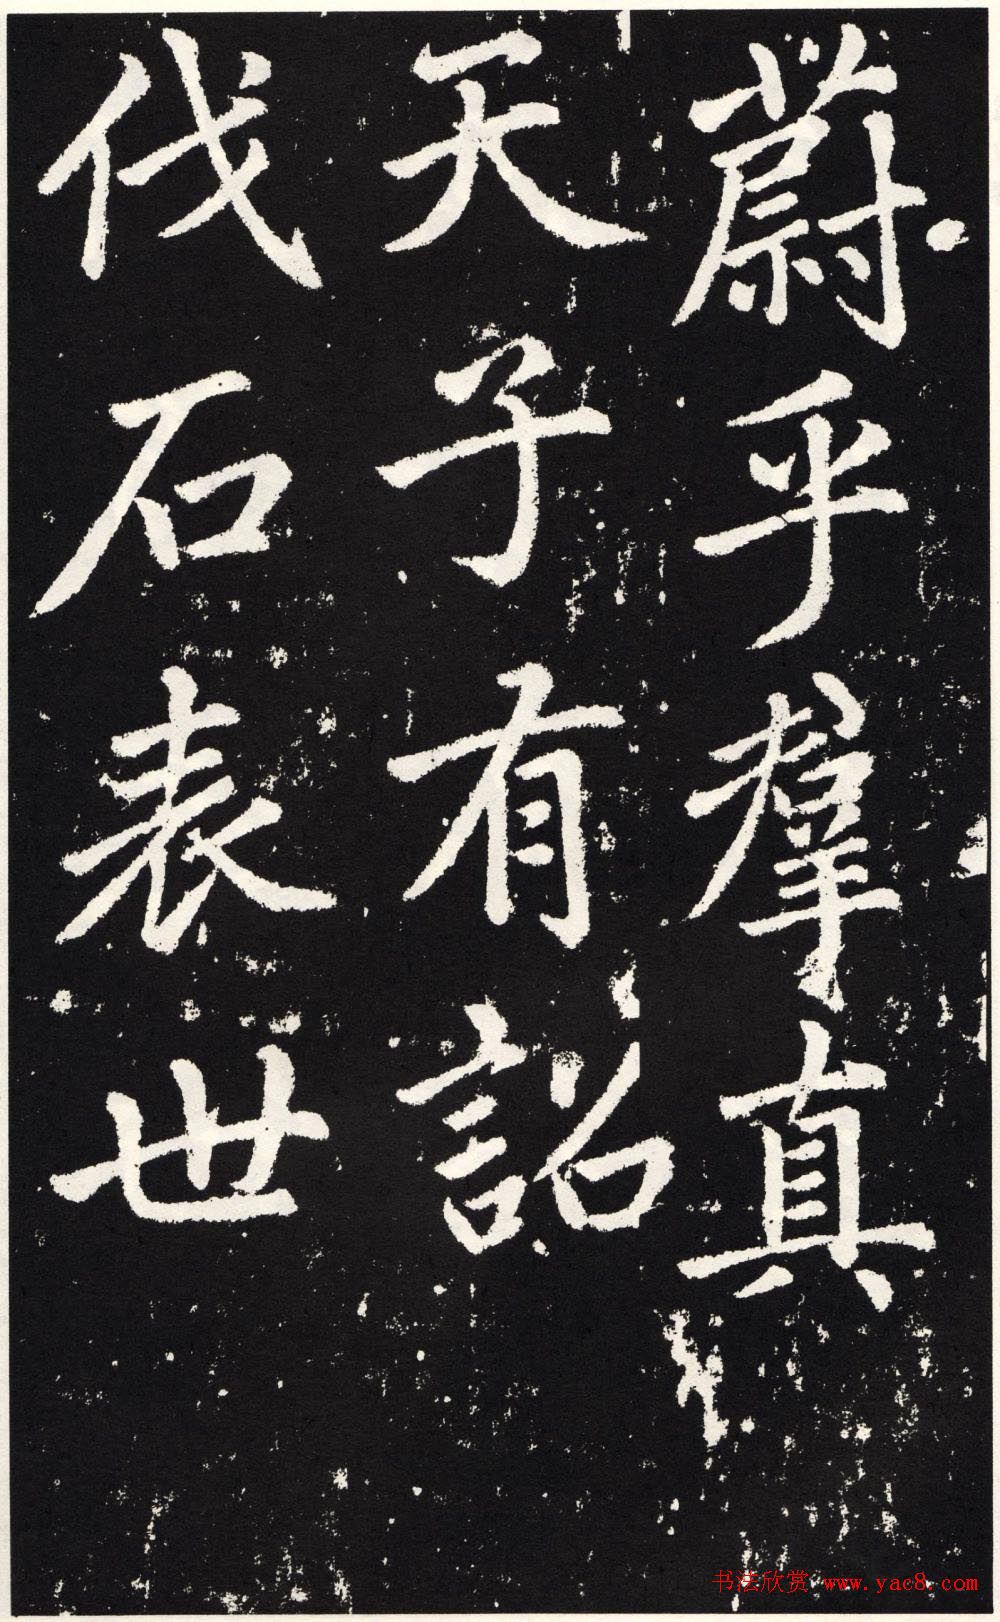 蔚乎羣真
天子有詔
伐石表世
书法欣赏 www.yac8.com